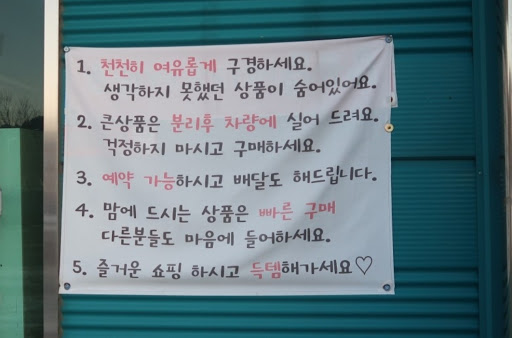 1. 천천히 여유롭게 구경하세요.
생각하지 못했던 상품이 숨어있어요.
2. 큰상품은 분리후 차량에 실어 드려요.
걱정하지 마시고 구매하세요.
3. 예약 가능하시고 배달도 해드립니다.
4. 맘에 드시는 상품은 빠른 구매
다른분들도 마음에 들어하세요.
5. 즐거운 쇼핑 하시고 득템해가세요♡